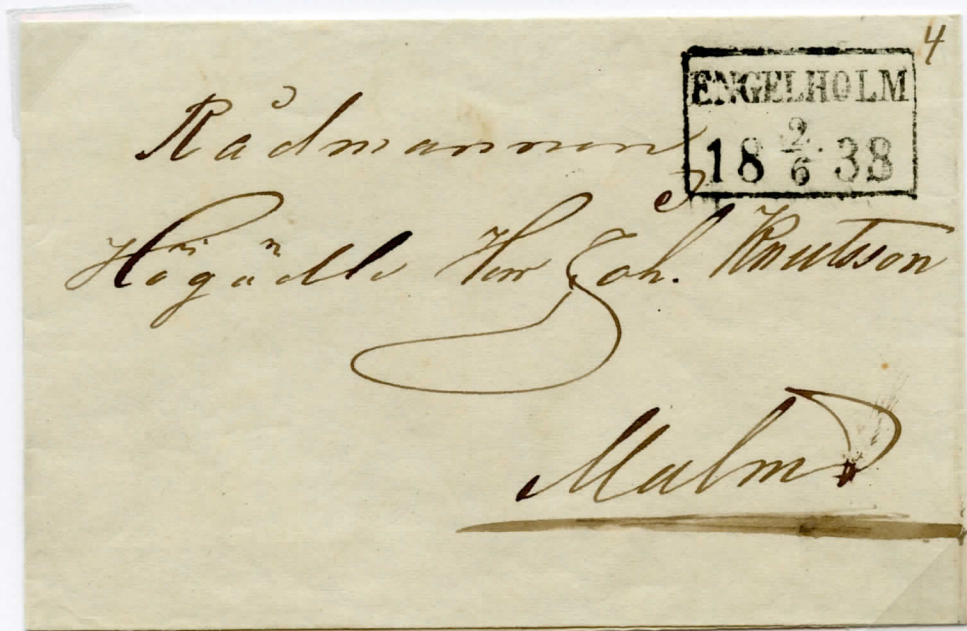 4
ENGELHOLM
18 2/6 38
Rådmannen
Högädle Herr Joh. Knutsson
Malmö